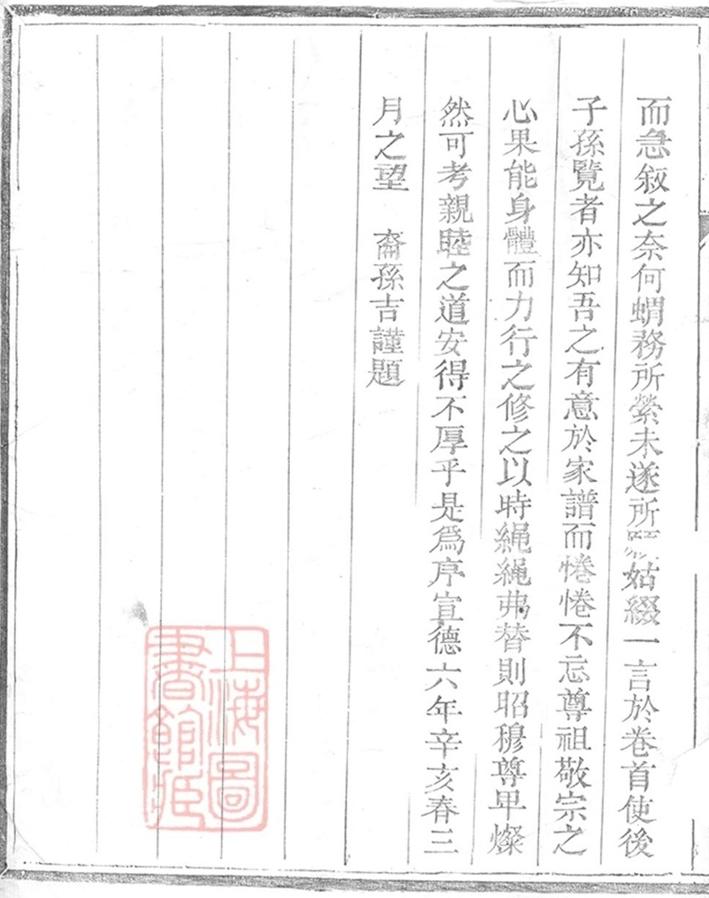 而急敘之奈何蝟務所縈未遂所願姑綴一言於卷首使後
子孫覽者亦知吾之有意於家譜而惓惓不忘尊祖敬宗之
心果能身體而力行之修之以時繩繩弗替則昭穆尊卑燦
然可考親睦之道安得不厚乎是爲序宣德六年辛亥春三
月之望　裔孫吉謹題
上海圖
書館藏